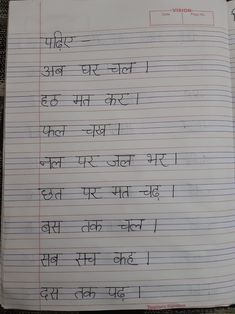 VISION
Date Page No.
पढ़िए —
अब घर चल ।
हठ मत कर ।
फल चख ।
नल पर जल भर ।
छत पर मत चढ़ ।
बस तक चल ।
सब सच कह ।
दस तक पढ़ ।